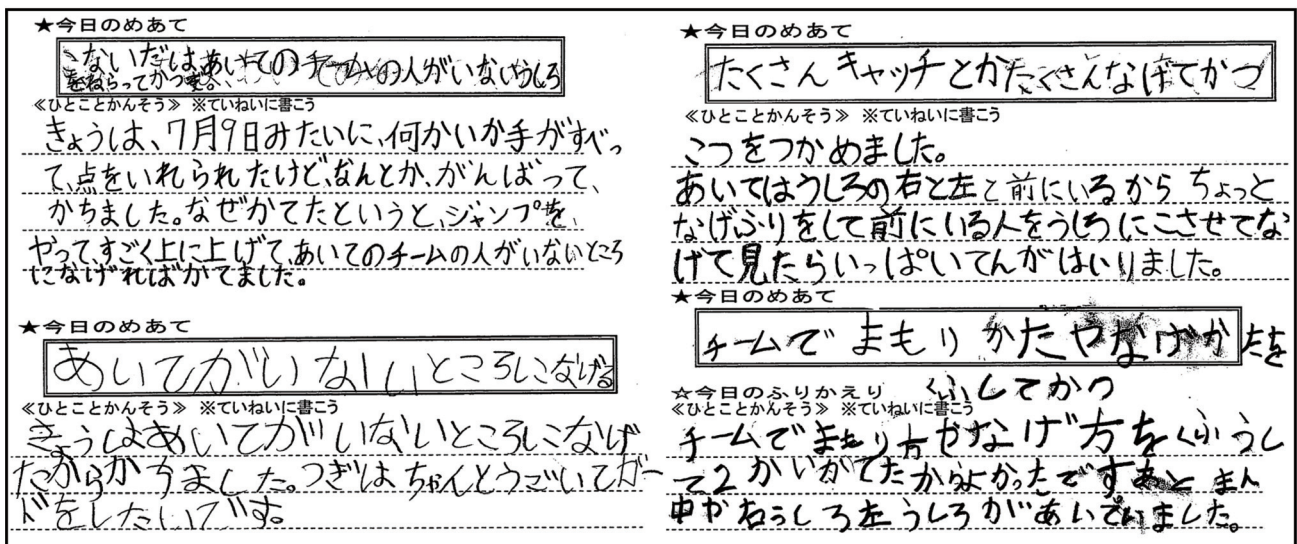 ★今日のめあて
こないだは、あいての手まえの人がいないうしろ
をねらってかつ
≪ひとことかんそう≫ ※ていねいに書こう
きょうは、7月9日みたいに、何かいか手がすべっ
て、点をいれられたけど、なんとか、がんばって、
かちました。なぜかてたというと、ジャンプを、
やって、すごく上に上げて、あいてのチームの人がいないところ
になげればかてました。
★今日のめあて
あいてがいないところになげる
≪ひとことかんそう≫ ※ていねいに書こう
きょうはあいてがいないところになげ
たからかちました。つぎはちゃんとうごいてガー
ドをしたいです。
★今日のめあて
たくさんキャッチとかたくさんなげてかつ
≪ひとことかんそう≫ ※ていねいに書こう
こつをつかめました。
あいてはうしろの右と左と前にいるからちょっと
なげふりをして前にいる人をうしろにこさせてな
げて見たらいっぱいてんがはいりました。
★今日のめあて
チームでまもりかたやなげかたを
くふしてかつ
☆今日のふりかえり
≪ひとことかんそう≫ ※ていねいに書こう
チームでまもり方やなげ方をくふうし
て2かいがてたからよかったですあとまん
中が右うしろ左うしろがあいていました。